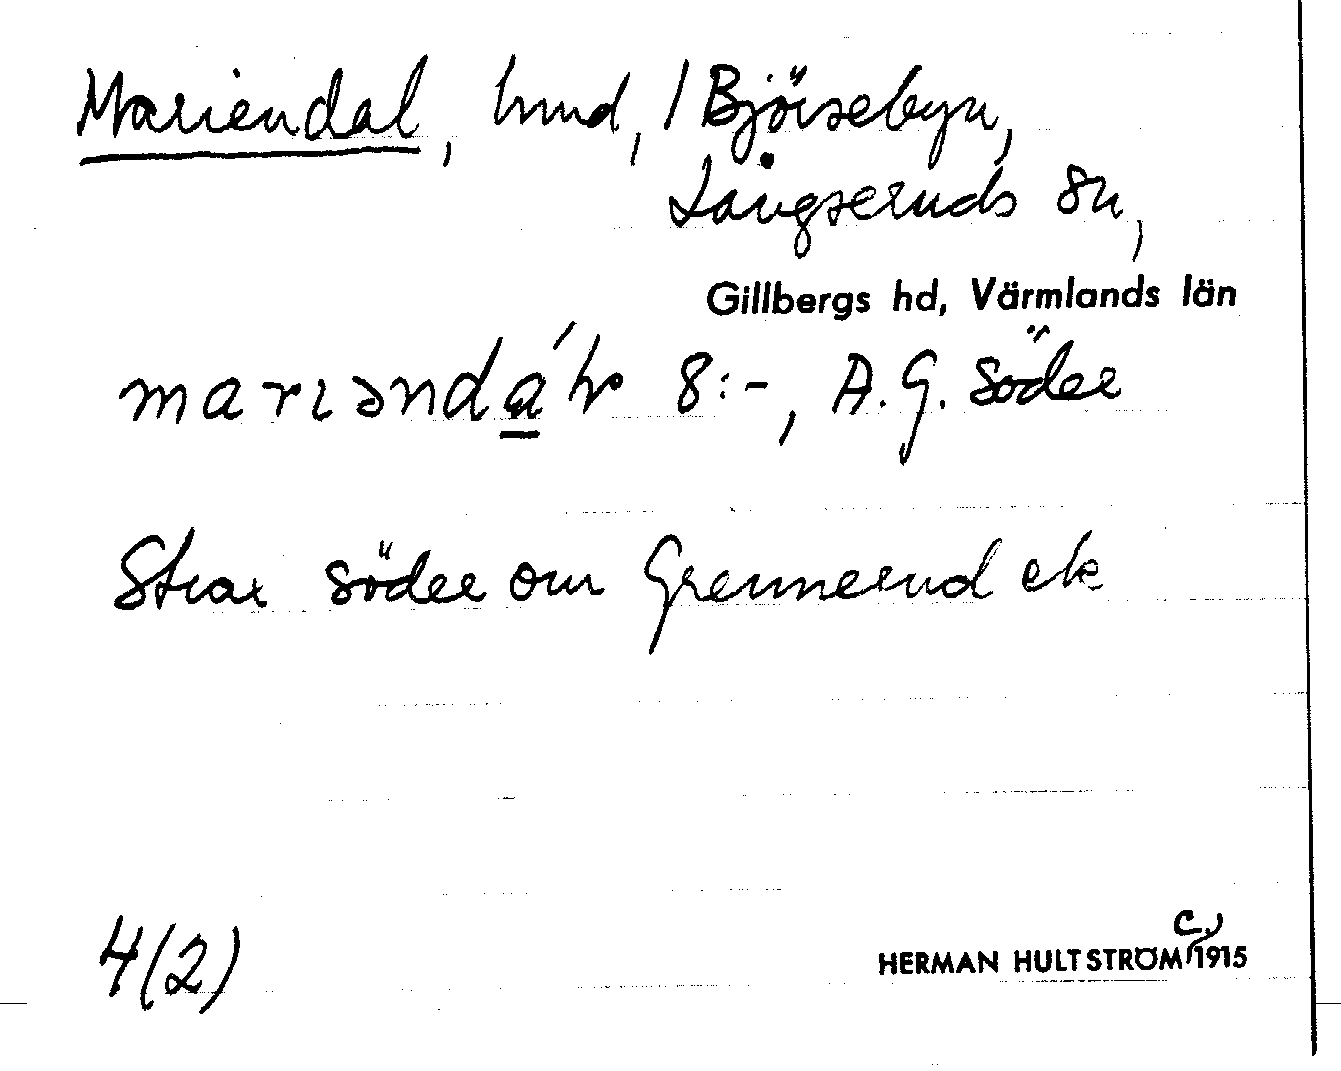 Mariendal, hmd, / Björsebyn,
Långseruds sn,
Gillbergs hd, Värmlands län
8:-, A.G. Söder
Strax söder om Grennerud ek
4(2)
HERMAN HULTSTRÖM c, 1915